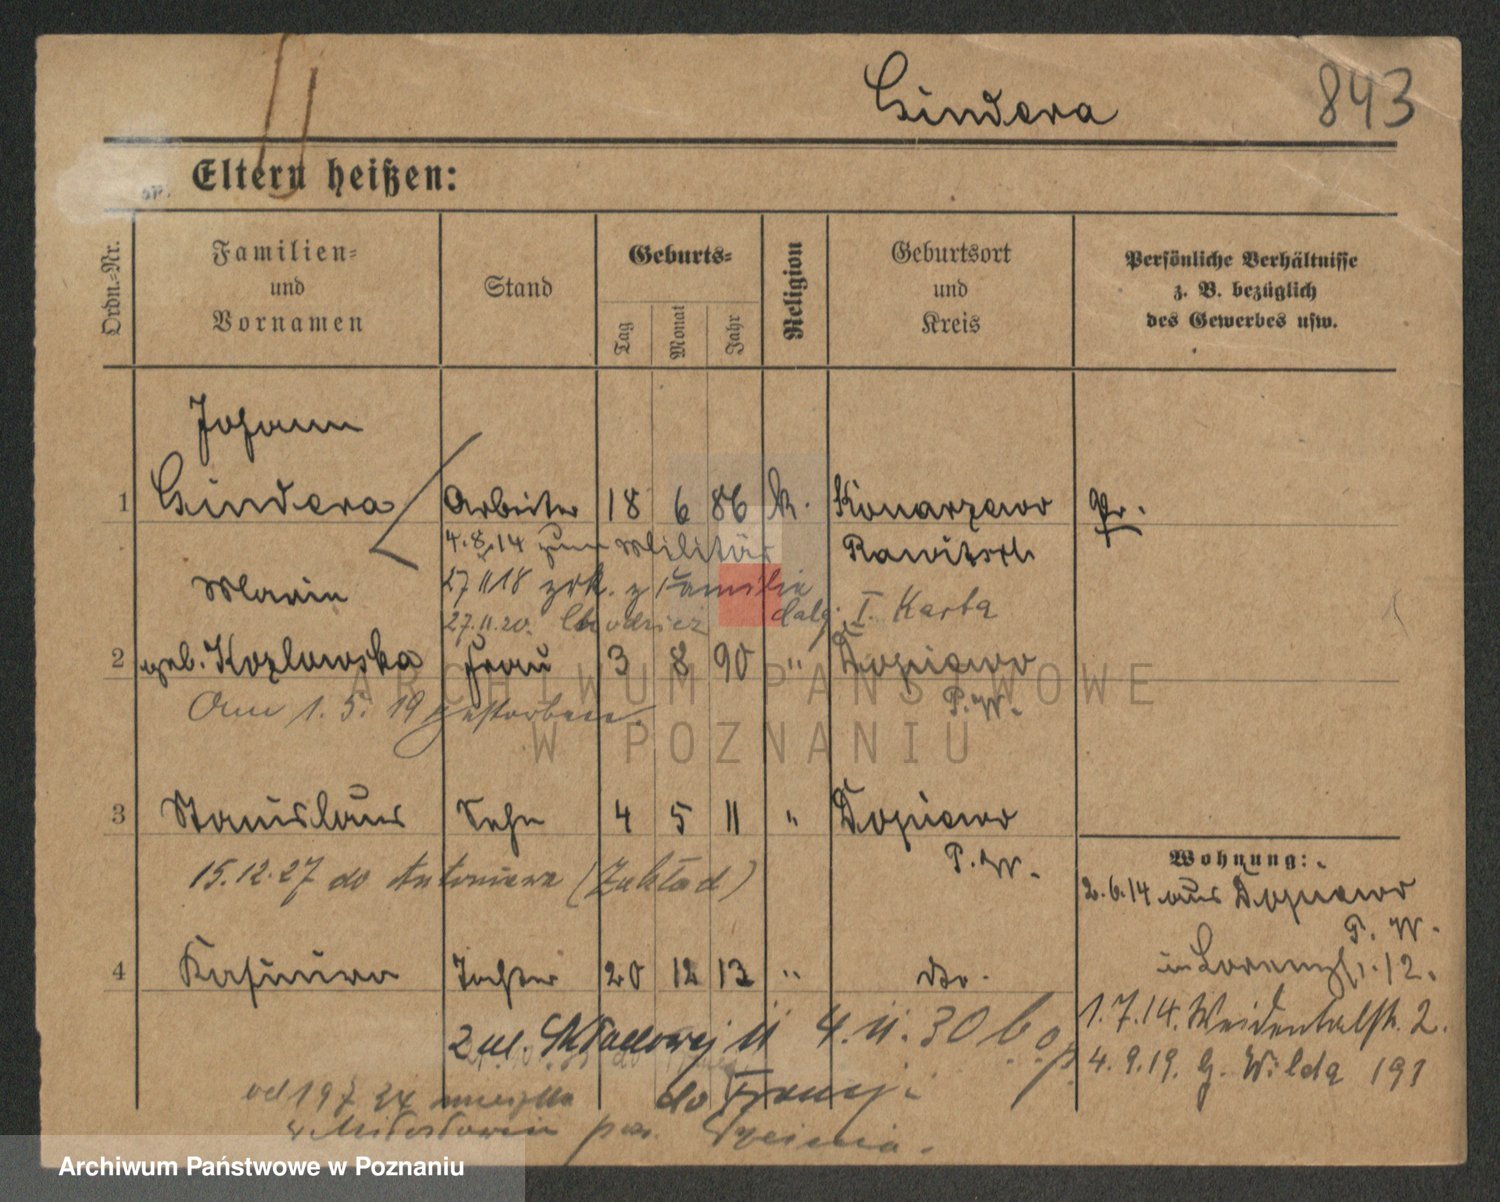 Gindera 843
Eltern heißen:
Ordn.=Nr.
Familien=
und
Vornamen
Stand
Geburts=
Tag
Monat
Jahr
Religion
Geburtsort
und
Kreis
Persönliche Verhältnisse
z. B. bezüglich
des Gewerbes usw.
Johann
1 Gindera Arbeiter 18 6 86 k. Konarzewo Pr.
4.8.14 zum Militär Rawitsch
27 11 18 zrk. z Familie
27.11.20. dalej I. Karta
Maria
2 geb. Kozlowska Frau 3 8 90 " Dopiewo
Am 1. 5. 19 gestorben. P. W.
3 Stanislaus Sohn 4 5 11 " Dopiewo
P. W.
15.12.27 do Antoniera (Zakład)
Wohnung:
2.6.14 aus Dopiewo
P. W.
in Lorenzst. 12.
4 Kasimira Tochter 20 12 13 " do.
1.7.14. Weidentalstr. 2.
4.9.19. G. Wilda 191
z ul. Składowej 11 4.11.30
do Francji
od 197 24
ARCHIWUM PAŃSTWOWE
W POZNANIU
Archiwum Państwowe w Poznaniu